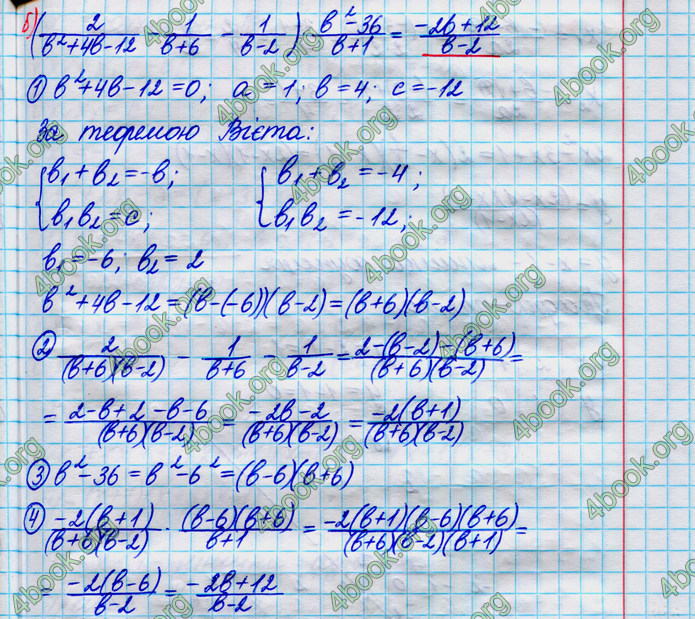 б) (2/(b²+4b-12) - 1/(b+6) - 1/(b-2)) · (b²-36)/(b+1) = (-2b+12)/(b-2)
① b²+4b-12=0; a=1; b=4; c=-12
За теоремою Вієта:
{b₁+b₂=-b; {b₁+b₂=-4;
{b₁b₂=c; {b₁b₂=-12;
b₁=-6; b₂=2
b²+4b-12=(b-(-6))(b-2)=(b+6)(b-2)
② 2/((b+6)(b-2)) - 1/(b+6) - 1/(b-2) = (2-(b-2)-(b+6))/((b+6)(b-2)) =
= (2-b+2-b-6)/((b+6)(b-2)) = (-2b-2)/((b+6)(b-2)) = (-2(b+1))/((b+6)(b-2))
③ b²-36=b²-6²=(b-6)(b+6)
④ (-2(b+1))/((b+6)(b-2)) · ((b-6)(b+6))/(b+1) = (-2(b+1)(b-6)(b+6))/((b+6)(b-2)(b+1)) =
= (-2(b-6))/(b-2) = (-2b+12)/(b-2)
4book.org